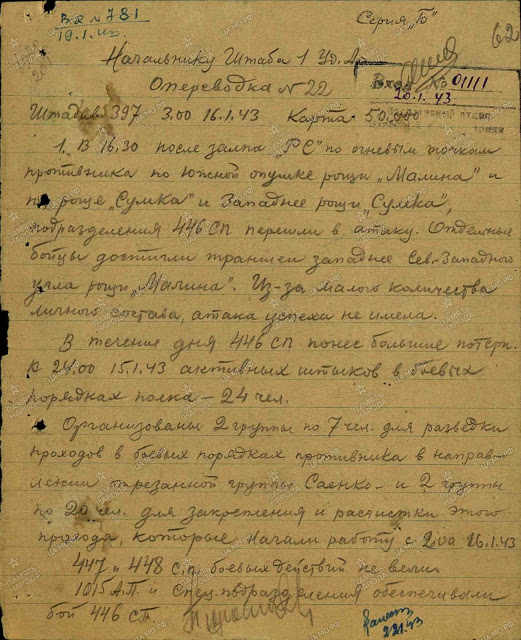 Вх2 №781
19.1.
Серия „Б"
62
Начальнику Штаба 1 Уд.
Опереводка №22
Вход. № 01111
20.1.43
Штадив 397 3.00 16.1.43 Карта 50.000
1. В 16.30 после залпа „РС" по огневым точкам
противника по Южной опушке рощи „Малина" и
по роще „Сумка" и Западнее рощи „Сумка",
подразделения 446 СП перешли в атаку. Отдельные
бойцы достигли траншеи западнее Сев-Западного
угла рощи „Малина". Из-за малого количества
личного состава, атака успеха не имела.
В течение дня 446 СП понес большие потери.
К 24.00 15.1.43 активных штыков в боевых
порядках полка – 24 чел.
Организованы 2 группы по 7 чел. для разведки
проходов в боевых порядках противника в направ-
лении отрезанной группы Саенко – и 2 группы
по 20 чел. для закрепления и расчистки этого
прохода, которые начали работу с 2.00 16.1.43
447 и 448 с.п. боевых действий не вели.
1015 А.П. и спец.подразделения обеспечивали
бой 446 СП
22.1.43